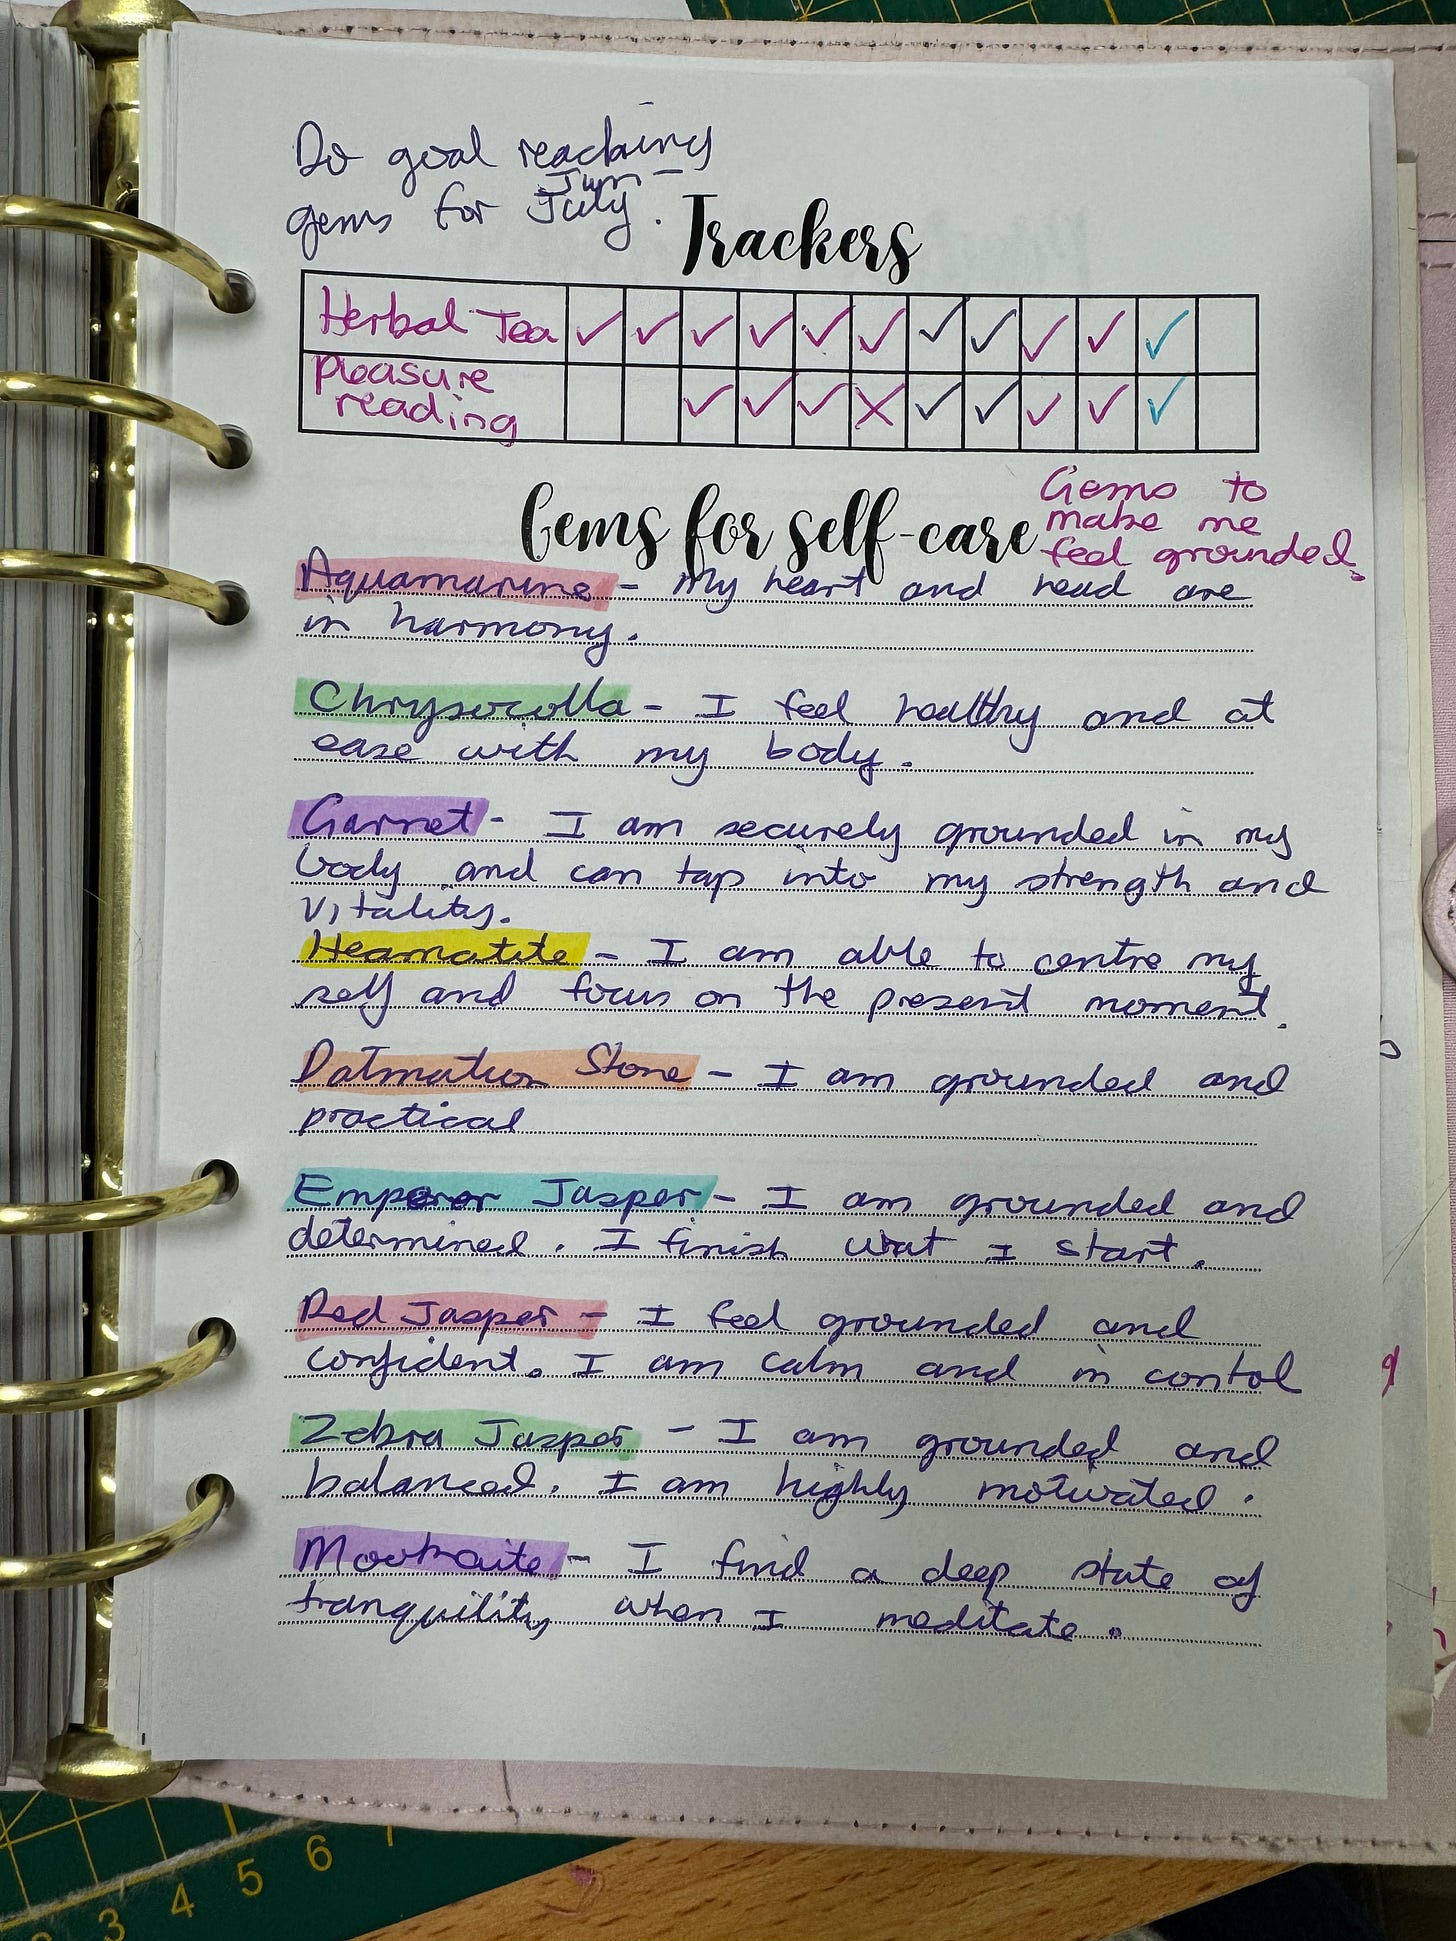 Do goal reaching
gems for July.
Jun -
Trackers
Herbal Tea ✓ ✓ ✓ ✓ ✓ ✓ ✓ ✓ ✓ ✓ ✓
Pleasure
reading ✓ ✓ ✓ X ✓ ✓ ✓ ✓ ✓
Gems for self-care
Gems to
make me
feel grounded.
Aquamarine - My heart and head are
in harmony.
Chrysocolla - I feel healthy and at
ease with my body.
Garnet - I am securely grounded in my
body and can tap into my strength and
vitality.
Heamatite - I am able to centre my
self and focus on the present moment.
Dalmation Stone - I am grounded and
practical
Emperor Jasper - I am grounded and
determined. I finish wat I start.
Red Jasper - I feel grounded and
confident. I am calm and in contol
Zebra Jasper - I am grounded and
balanced. I am highly motivated.
Mookaite - I find a deep state of
tranquility when I meditate.
3 4 5 6 7